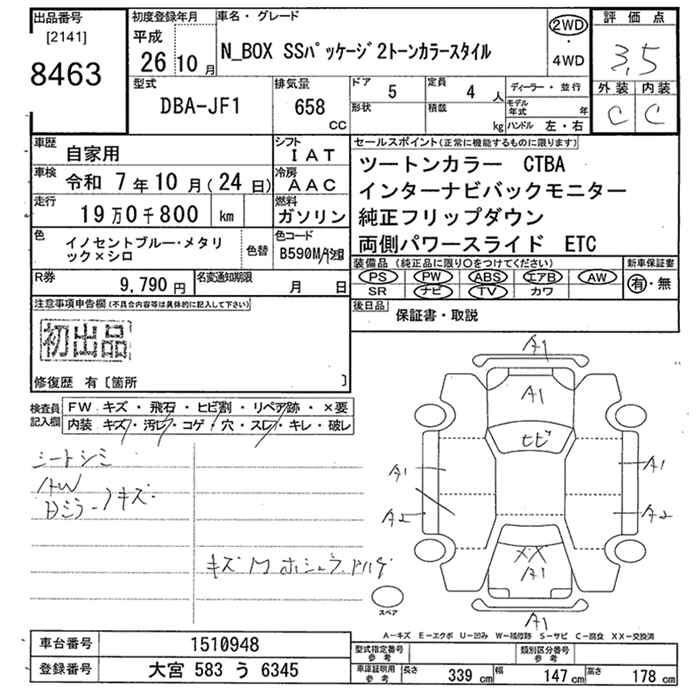 出品番号
[2141]
8463
初度登録年月
平成
26 10月
車名・グレード
N_BOX SSパッケージ2トーンカラースタイル
2WD
・
4WD
評価点
3.5
外装 内装
C C
型式
DBA-JF1
排気量
658
CC
ドア 5
定員 4 人
形状
積載 kg
ディーラー・並行
モデル年式 年
ハンドル 左・右
車歴 自家用
シフト IAT
車検 令和 7年10月(24日)
冷房 AAC
走行 19万0千800 km
燃料 ガソリン
色 イノセントブルー・メタリック×シロ
色替
色コード
B590M
セールスポイント(正常に機能するものに限ります)
ツートンカラー CTBA
インターナビバックモニター
純正フリップダウン
両側パワースライド ETC
R券 9,790円
名変通知期限 月 日
装備品(純正品に限り○をつけてください)
PS PW ABS エアB AW
SR ナビ TV カワ
新車保証書
有・無
後日品
保証書・取説
注意事項申告欄(不具合内容等は具体的に記入して下さい)
初出品
修復歴 有〔箇所 〕
検査員記入欄
FW キズ・飛石・ヒビ割・リペア跡・×要
内装 キズ・汚レ・コゲ・穴・スレ・キレ・破レ
シートシミ
AW
Dミラーキズ
A1
A1
ヒビ
A1 A1
A2 A2
XX
A1
A1
スペア
A-キズ E-エクボ U-凹み W-補修跡 S-サビ C-腐食 XX-交換済
車台番号 1510948
型式指定番号参考
類別区分番号参考
登録番号 大宮 583 う 6345
車庫証明用参考
長さ 339cm
幅 147cm
高さ 178cm